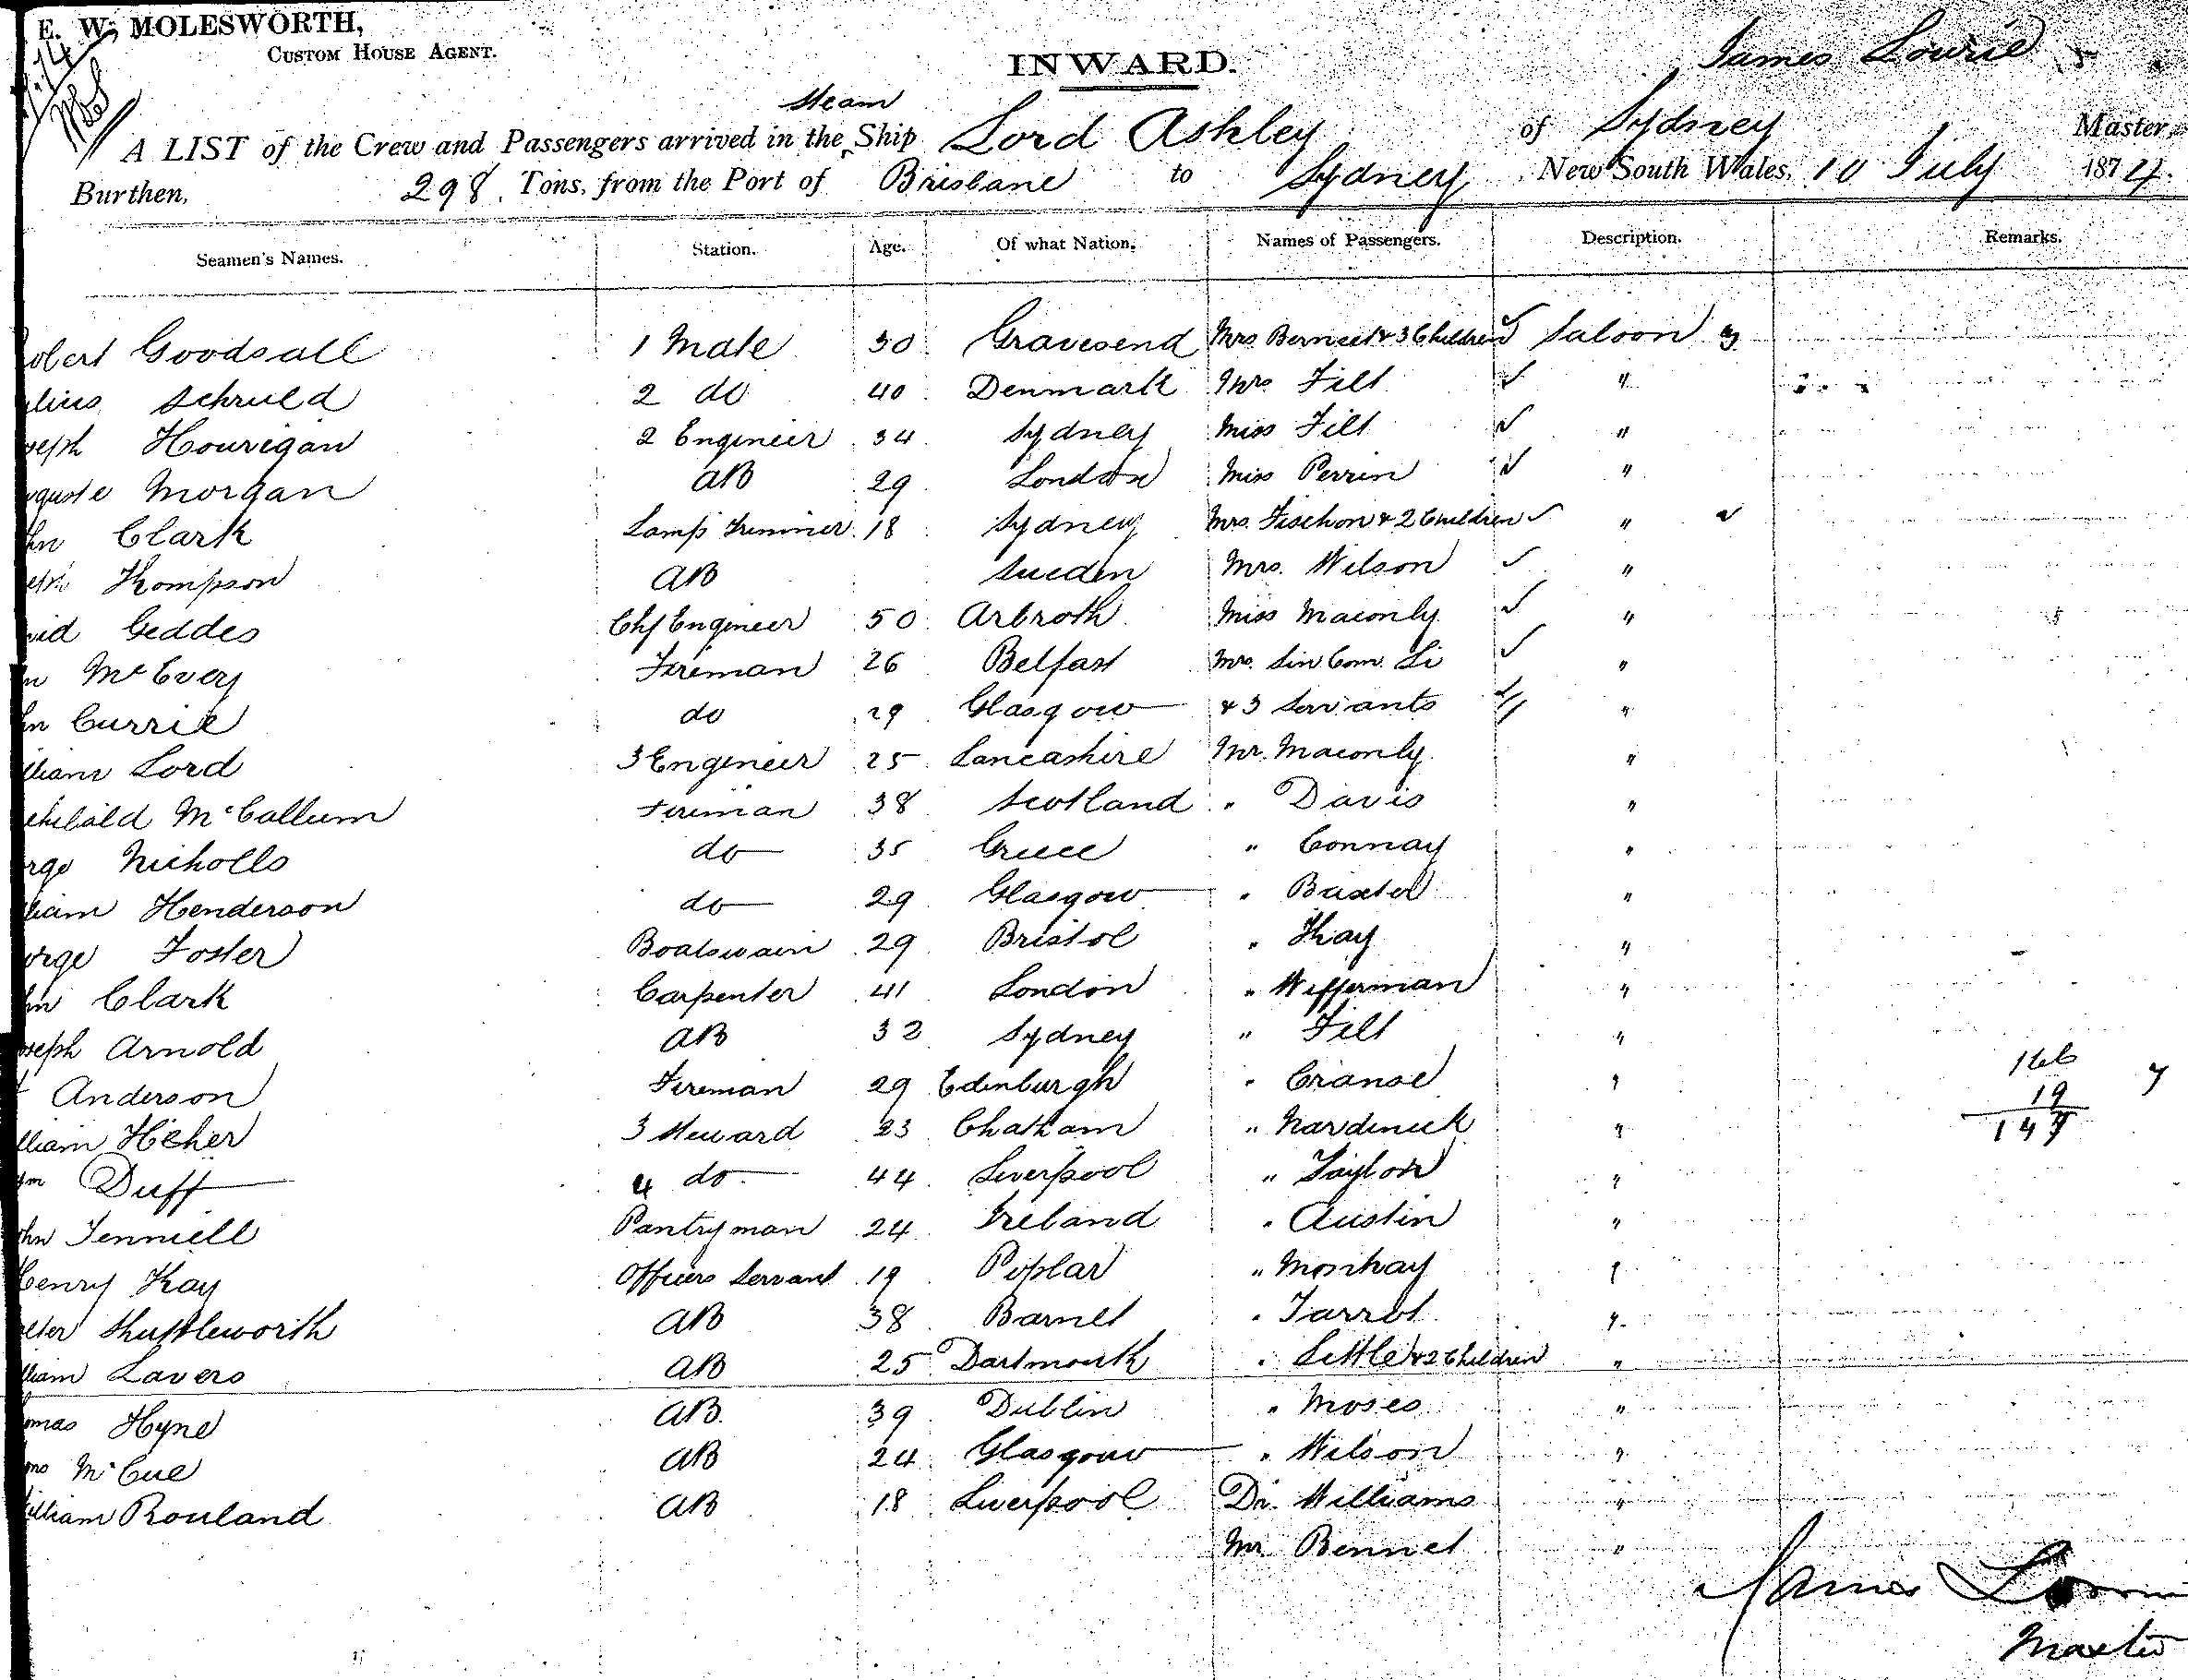 E. W. MOLESWORTH,
CUSTOM HOUSE AGENT.
INWARD.
James Lowrie
steam
A LIST of the Crew and Passengers arrived in the Ship Lord Ashley of Sydney Master,
Burthen, 298 Tons, from the Port of Brisbane to Sydney New South Wales, 10 July 1874.
Seamen's Names. Station. Age. Of what Nation. Names of Passengers. Description. Remarks.
obert Goodsall 1 Mate 30 Gravesend Mrs Bennet & 3 Children Saloon 3
ulius Schruld 2 do 40 Denmark Mrs Filt "
oseph Hourigan 2 Engineer 34 Sydney Miss Filt "
uguste Morgan AB 29 London Miss Perrin "
ohn Clark Lamp Trimmer 18 Sydney Mrs. Fischon & 2 Children " 2
eph Thompson AB Sueden Mrs. Wilson "
vid Geddes Chf Engineer 50 Arbroth Miss Maconly "
n McEvey Fireman 26 Belfast Mrs. Sin Com Li "
hn Currie do 29 Glasgow & 3 Servants "
lliam Lord 3 Engineer 25 Lancashire Mr. Maconly "
chibald McCallum Fireman 38 Scotland " Davis "
rge Nicholls do 35 Greece " Connay "
liam Henderson do 29 Glasgow " Baxter "
orge Foster Boatswain 29 Bristol " Kay "
hn Clark Carpenter 41 London " Wifferman "
oseph Arnold AB 32 Sydney " Filt "
Anderson Fireman 29 Edinburgh " Crane "
lliam Heher 3 Steward 23 Chatham " Nardinick "
m Duff 4 do 44 Liverpool " Taylor "
ohn Tenniell Pantryman 24 Ireland " Austin "
Henry Kay Officers Servant 19 Poplar " Monhay "
alter Shuttleworth AB 38 Barnet " Tarrot "
lliam Lavers AB 25 Dartmouth " Little & 2 Children "
omas Hyne AB 39 Dublin " Moses "
mes McCue AB 24 Glasgow " Wilson "
illiam Rouland AB 18 Liverpool Dr. Williams "
Mr Bennet "
166
19
147
7
James Lowrie
Master